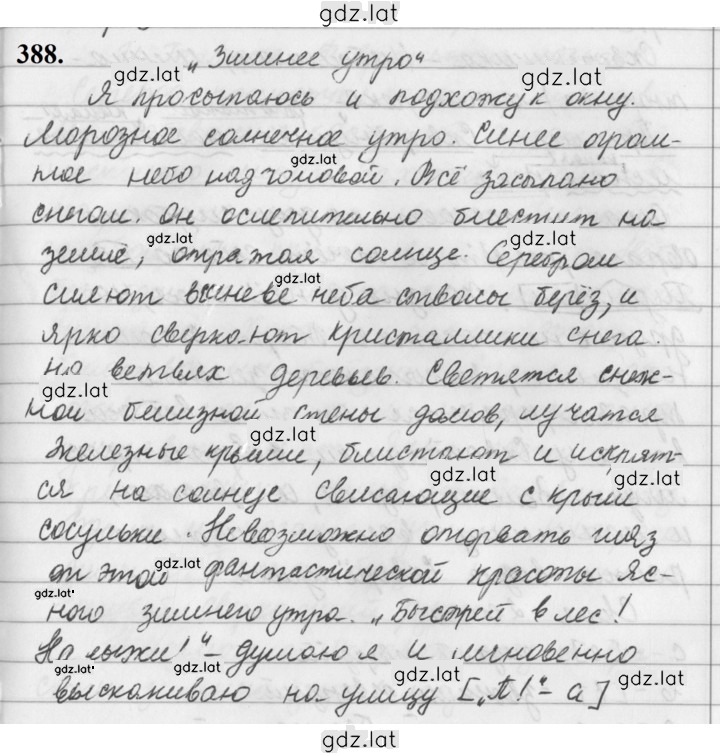 gdz.latъ
388.
„Зимнее утро"
gdz.lat gdz.lat
Я просыпаюсь и подхожу к окну.
Морозное солнечное утро. Синее огром-
gdz.lat
ное небо над головой. Всё засыпано
снегом. Он ослепительно блестит на
gdz.lat gdz.lat
земле, отражая солнце. Серебром
gdz.lat
сияют в синеве неба стволы берёз, и
ярко сверкают кристаллики снега
на ветвях деревьев. Светятся снеж-
gdz.lat
ной белизной стены домов, лучатся
gdz.lat
железные крыши, блистают и искрят-
gdz.lat gdz.lat
ся на солнце свисающие с крыш
сосульки. Невозможно оторвать глаз
gdz.lat
от этой фантастической красоты яс-
gdz.lat
ного зимнего утра. „Быстрей в лес!
На лыжи!" – думаю я и мгновенно
gdz.lat gdz.lat
выскакиваю на улицу [„П!" – а]
gdz.lat gdz.lat
gdz.lat